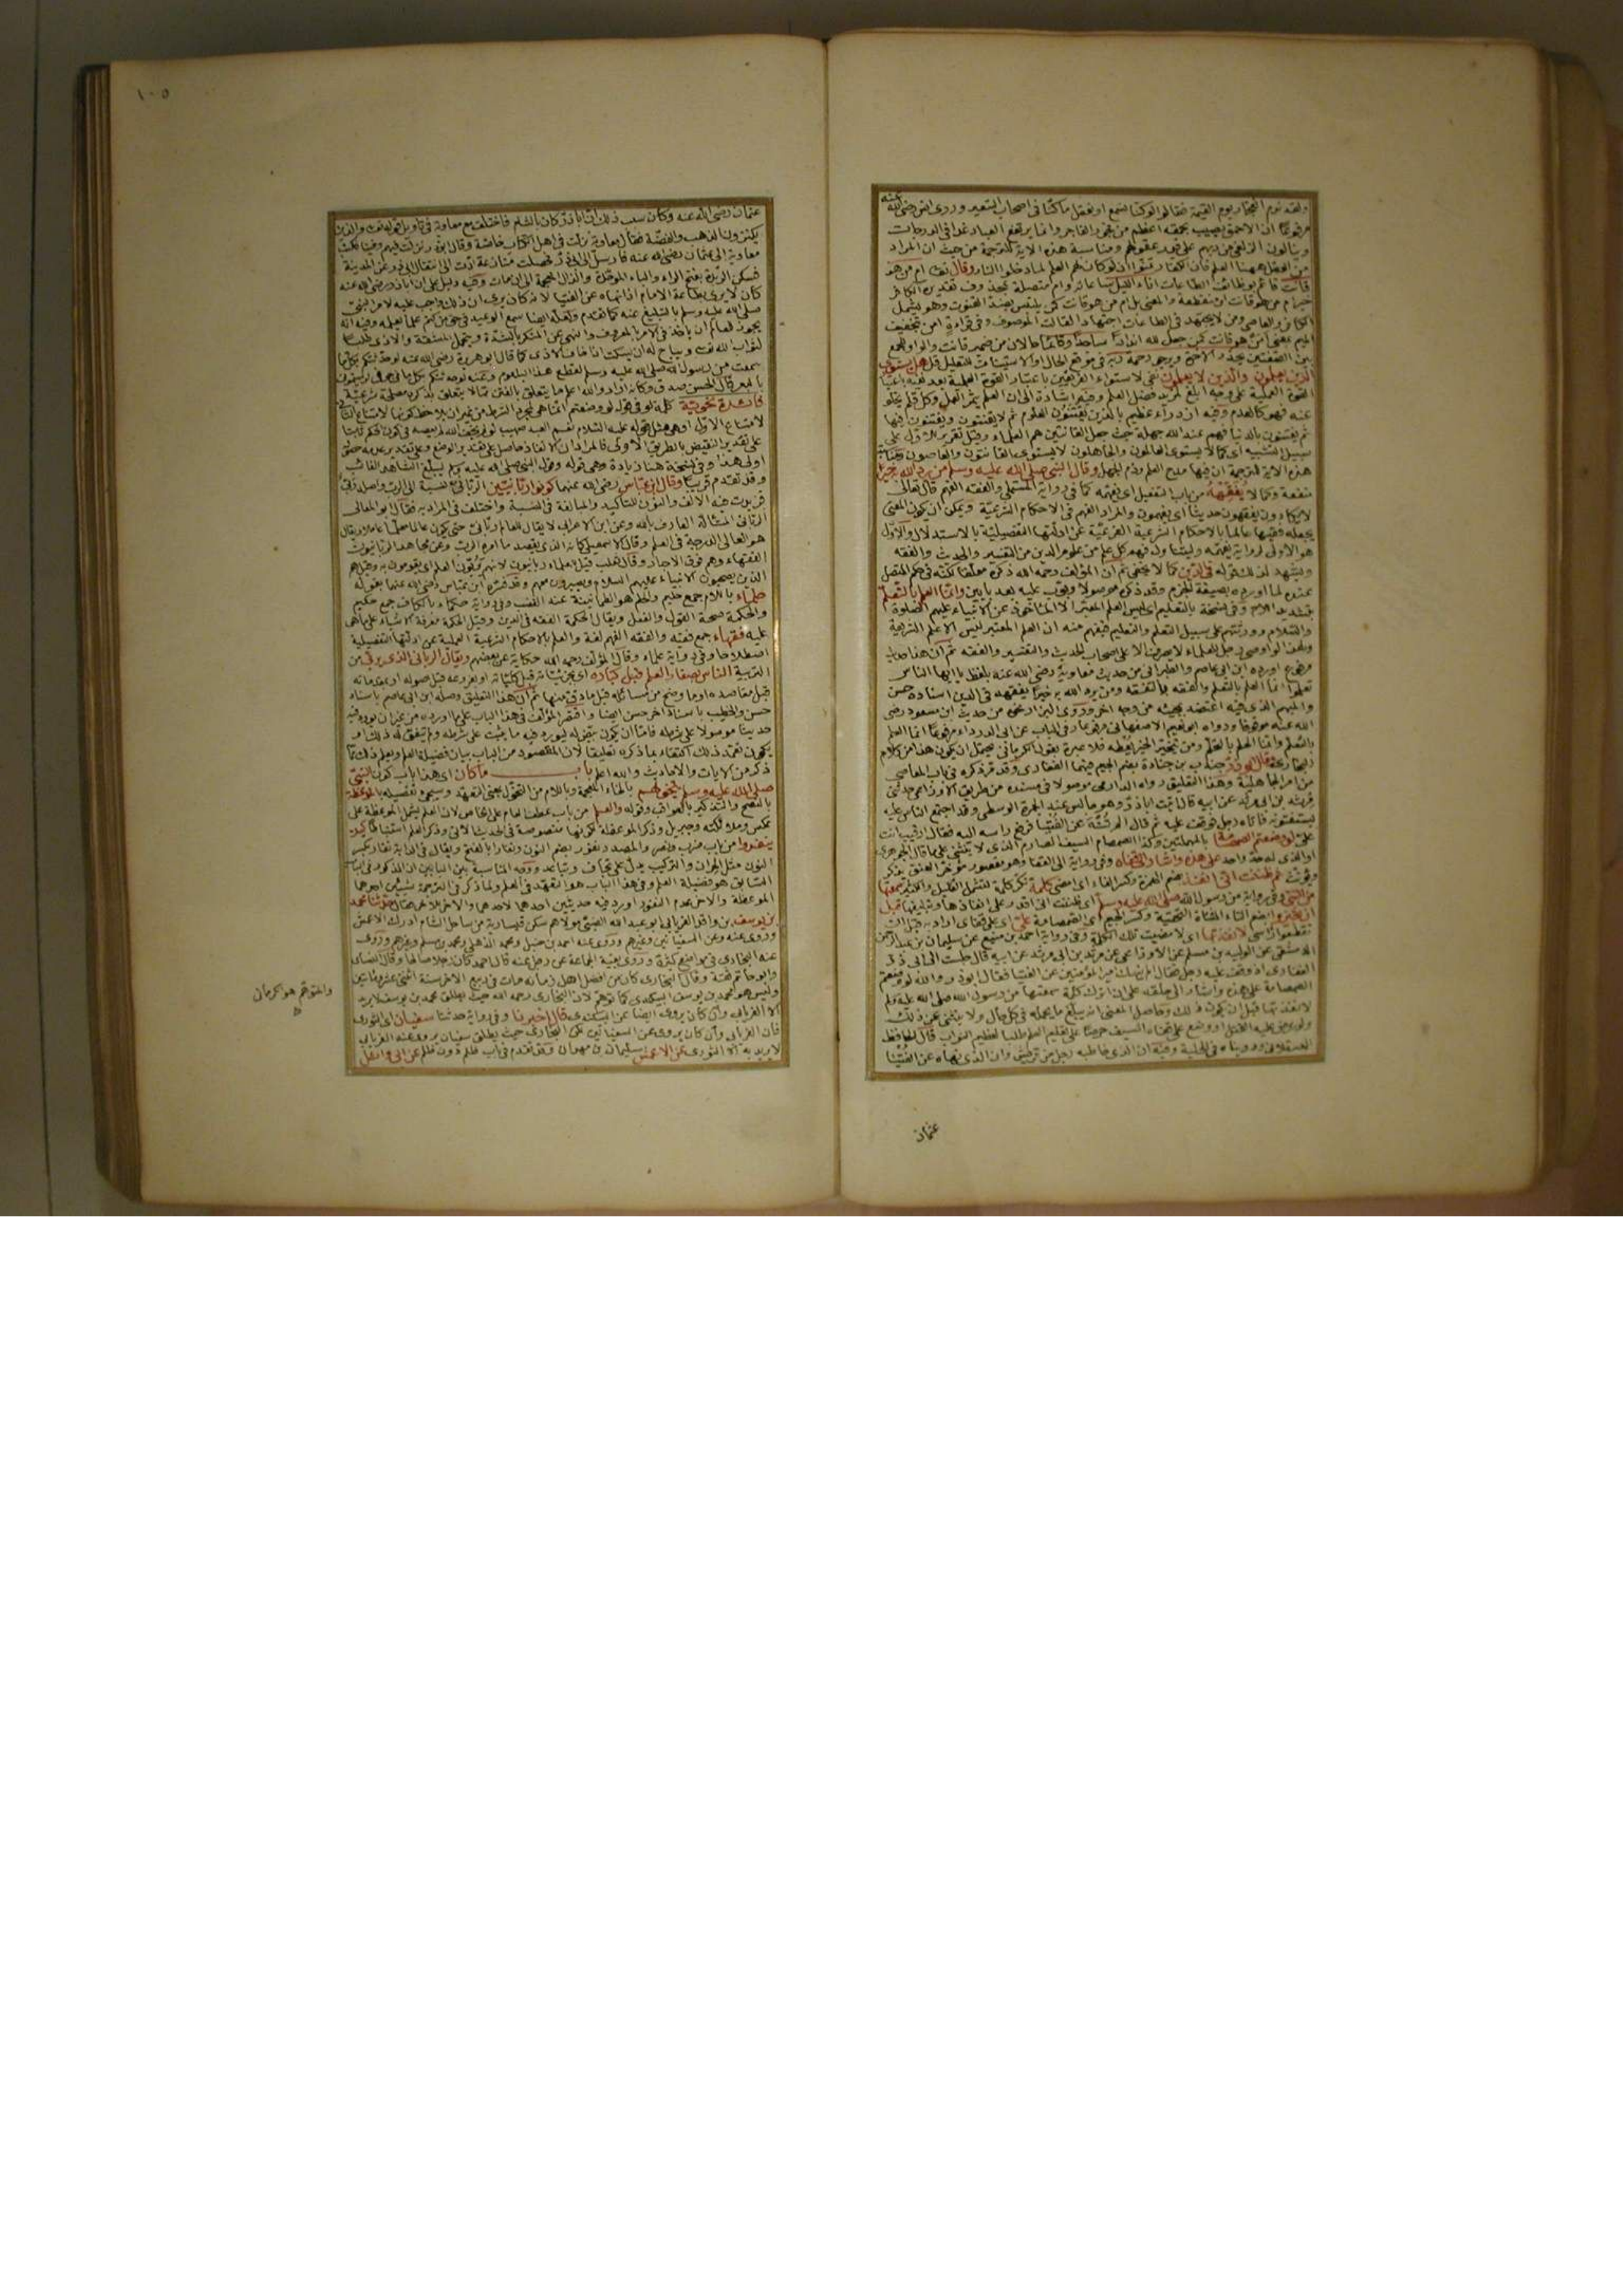 عنه
ولعنه نوم الفجار يوم القيمة فقالوا لو كنا نسمع او نعقل ما كنا في اصحاب السعير وروى انس رضي الله
مرفوعا ان الاحمق يصيب بحمقه اعظم من فجور الفاجر وانما يرتفع العباد غدا في الدرجات
وينالون الزلفى من ربهم على قدر عقولهم ومناسبة هذه الاية للترجمة من حيث ان المراد
من العقل ههنا العلم فان الكفار تمنوا ان لو كان لهم العلم لما دخلوا النار وقال تعالى ام من هو
قانت قائم بوظائف الطاعات اناء الليل ساعاته وام متصلة بمحذوف تقديره الكافر
خير ام من هو قانت او منقطعة والمعنى بل ام من هو قانت كمن بضده القنوت وهو يشمل
الكافر والعاصي ومن لا يجتهد في الطاعات اجتهاد القانت الموصوف وفي قراءة امن بتخفيف
الميم بمعنى امن هو قانت كمن جعل لله اندادا ساجدا وقائما حالان من ضمير قانت والواو للجمع
بين الصفتين يحذر الاخرة ويرجو رحمة ربه في موضع الحال او الاستيناف للتعليل قل هل يستوي
الذين يعلمون والذين لا يعلمون نفي لاستواء الفريقين باعتبار القوة العلمية بعد نفيه باعتبار
القوة العملية على وجه ابلغ لمزيد فضل العلم وفيه اشارة الى ان العلم يثمر العمل وكل علم يخلو
عنه فهو كالعدم وفيه ازدراء عظيم بالذين يقتنون العلوم ثم لا يقنتون ويفتنون فيها
ثم يفتنون بالدنيا فهم عند الله جهلة حيث جعل القانتين هم العلماء وقيل تقرير للاول على
سبيل التشبيه اي كما لا يستوي العالمون والجاهلون لا يستوي القانتون والعاصون ومناسبة
هذه الاية للترجمة ان فيها مدح العلم وذم الجهل وقال النبي صلى الله عليه وسلم من يرد الله به خيرا
يفقهه من باب التفعيل اي يفهمه كما في رواية المستملي والفقه الفهم قال تعالى
لا يكادون يفقهون حديثا اي يفهمون والمراد الفهم في الاحكام الشرعية ويمكن ان يكون المعنى
يجعله فقيها عالما بالاحكام الشرعية الفرعية عن ادلتها التفصيلية بالاستدلال والاول
هو الاولى لرواية يفهمه وليتناول فهم كل علم من علوم الدين من التفسير والحديث والفقه
ويشهد لذلك قوله في الدين كما لا يخفى ثم ان المؤلف رحمه الله ذكره معلقا لكنه في حكم المتصل
عنده لما اورده بصيغة الجزم وقد ذكره موصولا وبوب عليه بعد بابين وانما العلم بالتعلم
بتشديد اللام وفي نسخة بالتعليم اي ليس العلم المعتبر الا الماخوذ عن الانبياء عليهم الصلوة
والسلام وورثتهم على سبيل التعلم والتعليم فيفهم منه ان العلم المعتبر ليس الا علم الشريعة
ولهذا لو اوصى رجل للعلماء لا يصرف الا على اصحاب الحديث والتفسير والفقه ثم ان هذا حديث
مرفوع اورده ابن ابي عاصم والطبراني من حديث معاوية رضي الله عنه بلفظ يا ايها الناس
تعلموا انما العلم بالتعلم والفقه بالتفقه ومن يرد الله به خيرا يفقهه في الدين اسناده حسن
والمبهم الذي فيه اعتضد بمجيئه من وجه اخر وروى البزار نحوه من حديث ابن مسعود رضي
الله عنه موقوفا ورواه ابو نعيم الاصفهاني مرفوعا وفي الباب عن ابي الدرداء مرفوعا انما العلم
بالتعلم وانما الحلم بالتحلم ومن يتحر الخير يعطه فلا عبرة بقول الكرماني يحتمل ان يكون هذا من كلام
البخاري وقال ابو ذر جندب بن جنادة بضم الجيم فيهما الغفاري وقد مر ذكره في باب المعاصي
من امر الجاهلية وهذا التعليق رواه الدارمي موصولا في مسنده من طريق الاوزاعي حدثني
مرثد بن ابي مرثد عن ابيه قال اتيت ابا ذر وهو جالس عند الجمرة الوسطى وقد اجتمع الناس عليه
يستفتونه فاتاه رجل فوقف عليه ثم قال الم تنه عن الفتيا فرفع راسه اليه فقال ارقيب انت
علي لو وضعتم الصمصامة بالمهملتين وكذا الصمصام السيف الصارم الذي لا ينثني على ما قال الجوهري
او الذي له حد واحد على هذه واشار الى قفاه وفي رواية الى القفا وهو مقصور مؤخر العنق يذكر
ويؤنث ثم ظننت اني انفذ بضم الهمزة وكسر الفاء اي امضي كلمة نكر كلمة لتشمل القليل والكثير سمعتها
من النبي وفي رواية من رسول الله صلى الله عليه وسلم اي ظننت اني اقدر على انفاذها وتبليغها قبل
ان تجيزوا بضم التاء المثناة الفوقية وكسر الجيم اي الصمصامة علي اي على قفاي اراد به قبل ان
تقطعوا راسي لانفذتها اي لامضيت تلك الكلمة وفي رواية احمد بن منيع عن سليمان بن عبد الرحمن
الدمشقي عن الوليد بن مسلم عن الاوزاعي عن مرثد بن ابي مرثد عن ابيه قال جلست الى ابي ذر
الغفاري اذ وقف عليه رجل فقال الم ينهك امير المؤمنين عن الفتيا فقال ابو ذر والله لو وضعتم
الصمصامة على هذه واشار الى حلقه على ان اترك كلمة سمعتها من رسول الله صلى الله عليه وسلم
لانفذتها قبل ان يكون ذلك وحاصل المعنى انه يبلغ ما يحمله في كل حال ولا ينثني عن ذلك
ولو عرض عليه القتل او وضع على قفاه السيف حرصا على تعليم العلم طلبا لعظيم الثواب قال الحافظ
العسقلاني ورويناه في الحلية وفيه ان الذي خاطبه رجل من قريش وان الذي نهاه عن الفتيا
عثمان
١٠٥
عثمان رضي الله عنه وكان سبب ذلك ان ابا ذر كان بالشام فاختلف مع معاوية في تاويل قوله تعالى والذين
يكنزون الذهب والفضة فقال معاوية نزلت في اهل الكتاب خاصة وقال ابو ذر نزلت فيهم وفينا فكتب
معاوية الى عثمان رضي الله عنه فارسل الى ابي ذر فحصلت منازعة ادت الى انتقال ابي ذر عن المدينة
فسكن الربذة بفتح الراء والباء الموحدة والذال المعجمة الى ان مات وفيه دليل على ان ابا ذر رضي الله عنه
كان لا يرى بطاعة الامام اذا نهاه عن الفتيا لانه كان يرى ان ذلك واجب عليه لامر النبي
صلى الله عليه وسلم بالتبليغ عنه كما تقدم ولعله ايضا سمع الوعيد في حق من كتم علما يعلمه وفيه انه
يجوز للعالم ان ياخذ في الامر بالمعروف والنهي عن المنكر بالشدة ويحتمل المشقة والاذى طلبا
لثواب الله تعالى ويباح له ان يسكت اذا خاف الاذى كما قال ابو هريرة رضي الله عنه لو حدثتكم بكل ما
سمعت من رسول الله صلى الله عليه وسلم لقطع هذا البلعوم وعنه لو حدثتكم بكل ما في جوفي لرميتموني
بالبعر قال الحسن صدق وكانه اراد والله اعلم ما يتعلق بالفتن مما لا يتعلق بذكره مصلحة شرعية
فائدة نحوية كلمة لو في قوله لو وضعتم انما هي لمجرد الشرط من غير ان يلاحظ كونها لامتناع الثاني
لامتناع الاول او هي مثل قوله عليه السلام نعم العبد صهيب لو لم يخف الله لم يعصه في كون الحكم ثابتا
على تقدير النقيض بالطريق الاولى فالمراد ان الانفاذ حاصل على تقدير الوضع وعلى تقدير عدمه حصوله
اولى هذا وفي نسخة هنا زيادة وهي قوله وقول النبي صلى الله عليه وسلم يبلغ الشاهد الغائب
وقد تقدم قريبا وقال ابن عباس رضي الله عنهما كونوا ربانيين الرباني نسبة الى الرب واصله ربي
فزيدت فيه الالف والنون للتاكيد والمبالغة في النسبة واختلف في المراد به فقال ابو المعالي
الرباني المتاله العارف بالله وعن ابن الاعرابي لا يقال للعالم رباني حتى يكون عالما معلما عاملا ويقال
هو العالي الدرجة في العلم وقال الاسمعيلي كانه الذي يقصد ما امره الرب وعن مجاهد الربانيون
الفقهاء وهم فوق الاحبار وقال ثعلب قيل للعلماء ربانيون لانهم يربون العلم اي يقومون به وقيل هم
الذين يصحبون الانبياء عليهم السلام ويصيرون معهم وقد فسره ابن عباس رضي الله عنهما بقوله
حلماء باللام جمع حليم والحلم هو الطمانينة عند الغضب وفي رواية حكماء بالكاف جمع حكيم
والحكمة صحة القول والفعل ويقال الحكمة الفقه في الدين وقيل الحكمة معرفة الاشياء على ما هي
عليه فقهاء جمع فقيه والفقه الفهم لغة والعلم بالاحكام الشرعية العملية عن ادلتها التفصيلية
اصطلاحا وفي رواية علماء وقال المؤلف رحمه الله حكاية عن بعضهم ويقال الرباني الذي يربي من
التربية الناس بصغار العلم قبل كباره اي بجزئياته قبل كلياته او بفروعه قبل اصوله او بمقدماته
قبل مقاصده او ما وضح من مسائله قبل ما دق منها ثم ان هذا التعليق وصله ابن ابي عاصم باسناد
حسن والخطيب باسناد اخر حسن ايضا واقتصر المؤلف في هذا الباب على ما اورده من غير ان يورد فيه
حديثا موصولا على شرطه فاما ان يكون بيض له ليورد فيه ما يثبت على شرطه ولم يتفق له ذلك او
يكون تعمد ذلك اكتفاء بما ذكره تعليقا لان المقصود من الباب بيان فضيلة العلم ويعلم ذلك مما
ذكر من الايات والاحاديث والله اعلم باب ما كان اي هذا باب كون النبي
صلى الله عليه وسلم يتخولهم بالخاء المعجمة وباللام من التخول بمعنى التعهد وسيجئ تفصيله بالموعظة
بالنصح والتذكير بالعواقب وقوله والعلم من باب عطف العام على الخاص لان العلم يشمل الموعظة على
عكس وملائكته وجبريل وذكر الموعظة لكونها منصوصة في الحديث الاتي وذكر العلم استنباطا كيلا
ينفروا من باب ضرب ونصر والمصدر نفور بضم النون ونفار بالفتح ويقال في الدابة نفار بكسر
النون مثل الحران والتركيب يدل على تجاف وتباعد ووجه المناسبة بين البابين ان المذكور في الباب
السابق هو فضيلة العلم وفي هذا الباب هو التعهد في العلم ولما ذكر في الترجمة شيئين احدهما
الموعظة والاخر عدم النفور اورد فيه حديثين احدهما لاحدهما والاخر للاخر فقال حدثنا محمد
بن يوسف بن واقد الفريابي ابو عبد الله الضبي مولاهم سكن قيسارية من ساحل الشام ادرك الاعمش
وروى عنه وعن السفيانين وغيرهم وروى عنه احمد بن حنبل ومحمد الذهلي ومحمد بن مسلم وغيرهم وروى
عنه البخاري في مواضع كثيرة وروى بقية الجماعة عن رجل عنه قال احمد كان رجلا صالحا وقال النسائي
وابو حاتم ثقة وقال البخاري كان من افضل اهل زمانه مات في ربيع الاخر سنة اثنتي عشرة ومائتين
وليس هو محمد بن يوسف البيكندي كما توهم لان البخاري رحمه الله حيث يطلق محمد بن يوسف لا يريد
الا الفريابي وان كان يروي ايضا عن البيكندي قال اخبرنا وفي رواية حدثنا سفيان اي الثوري
فان الفريابي وان كان يروي عن السفيانين لكن البخاري حيث يطلق سفيان يروي عنه الفريابي
لا يريد به الا الثوري عن الاعمش سليمان بن مهران وقد تقدم في باب ظلم دون ظلم عن ابي وائل
والمتوهم هو الكرماني